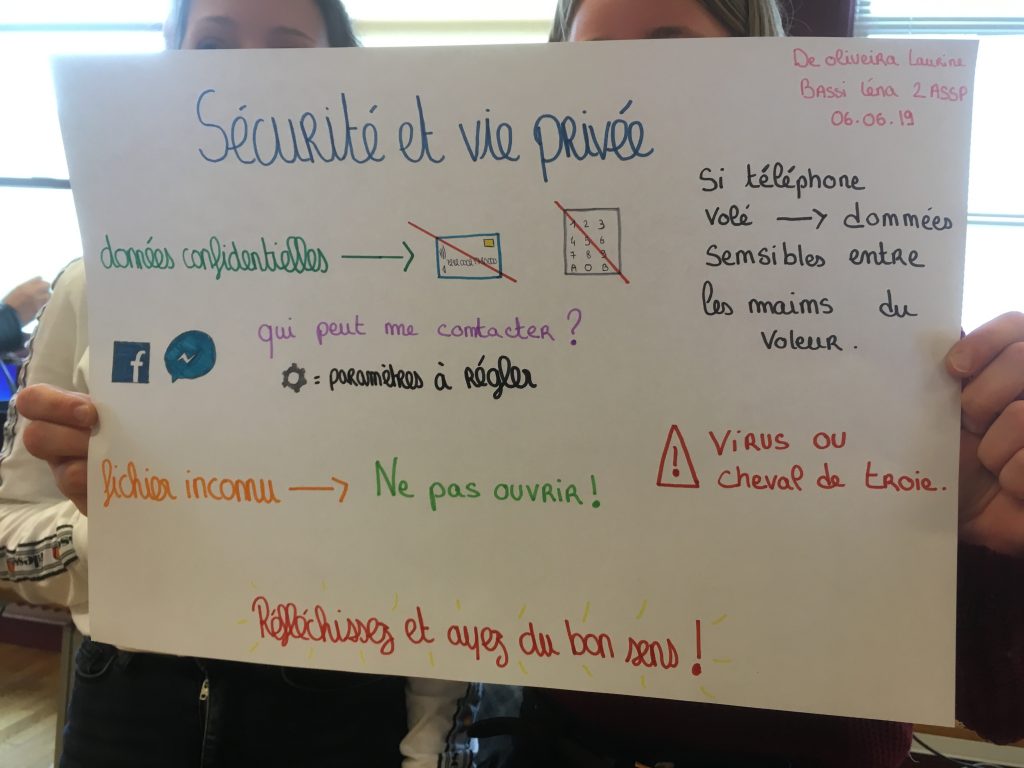 De oliveira Laurine
BASSi léna 2ASSP
06.06.19
Sécurité et vie privée
Si téléphone
volé → données
sensibles entre
les mains du
voleur.
données confidentielles →
1 2 3
4 5 6
7 8 9
A 0 B
qui peut me contacter ?
f
= paramètres à régler
fichier inconnu → Ne pas ouvrir !
! Virus ou
cheval de troie.
Réfléchissez et ayez du bon sens !